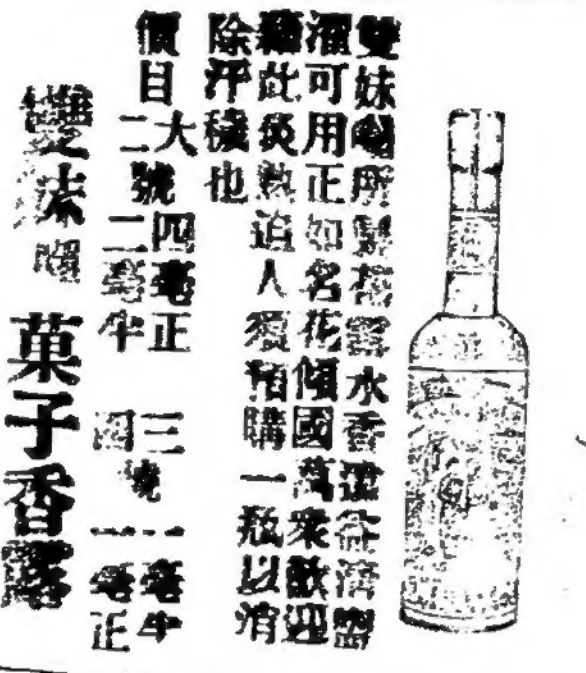 雙妹嘜所製露水香遠益清盥
濯可用正如名花傾國萬衆歡迎
此炎熱迫人須預購一瓶以消
除汗穢也
價目
大號 四毫正 三號 一毫半
二號 二毫半 四號 一毫正
雙妹嘜 菓子香露